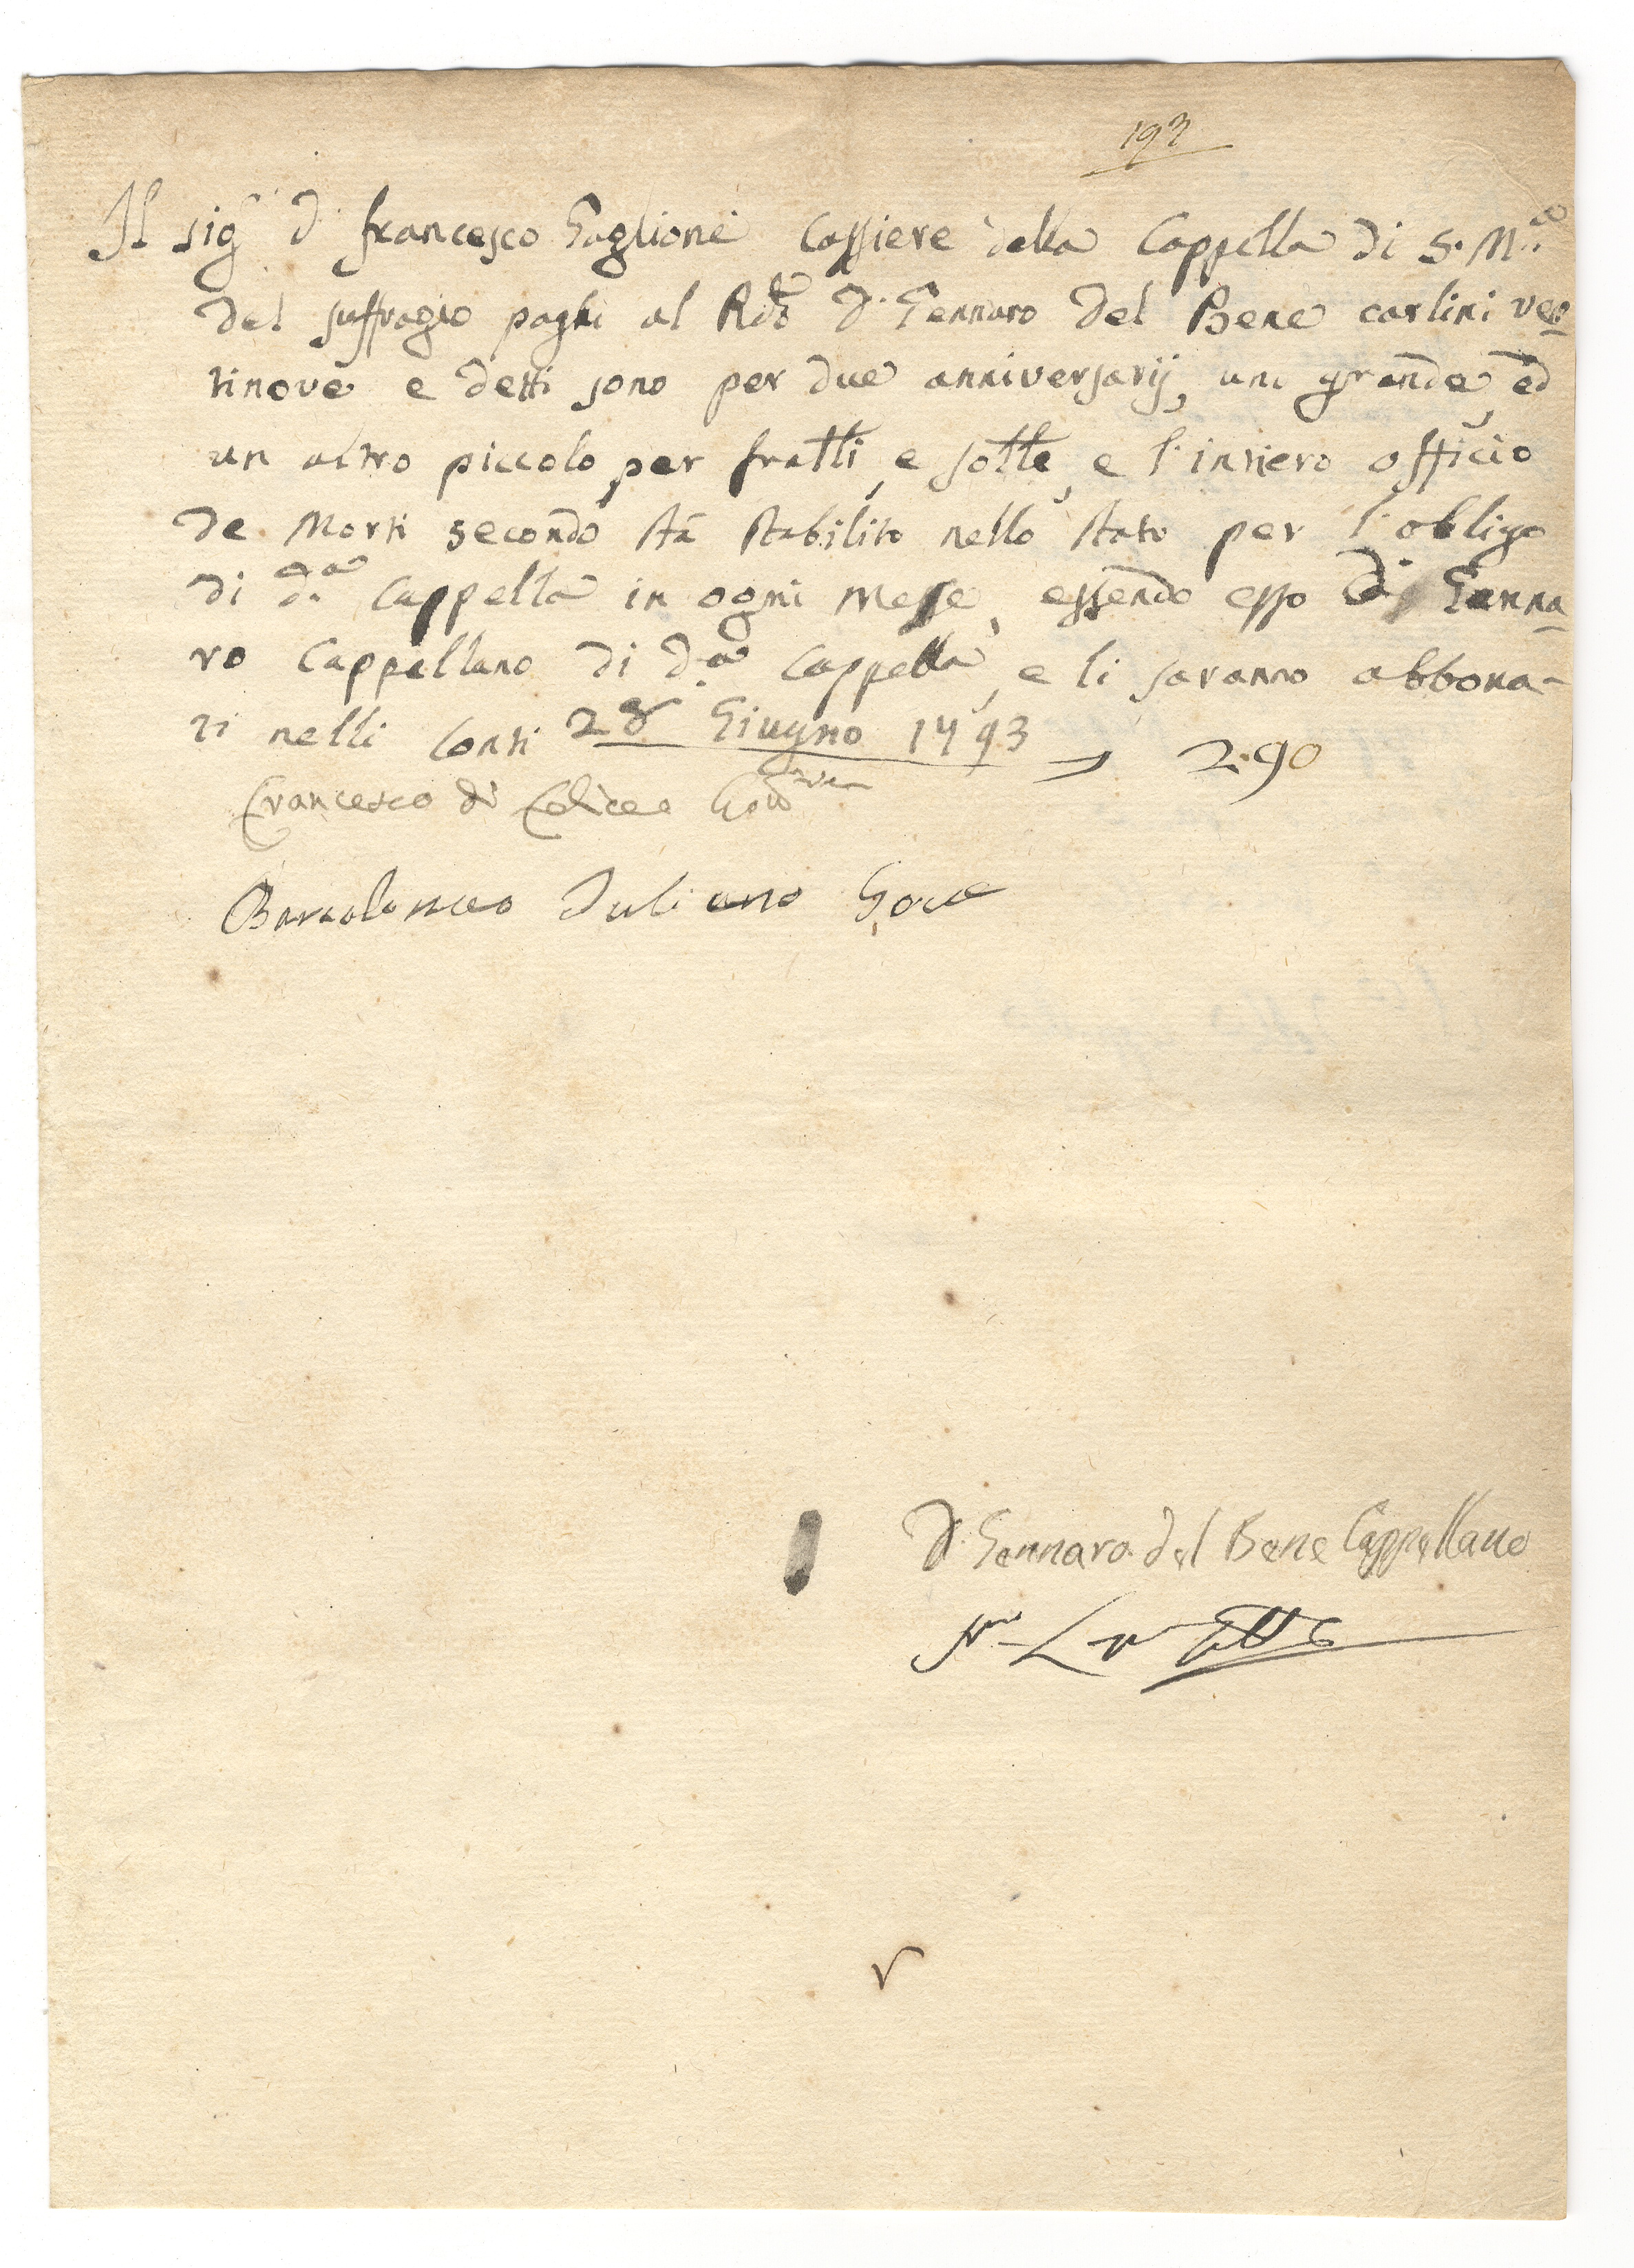 193
Il sig.r D. Francesco Gaglione Cassiere della Cappella di S. M.a
del suffragio paghi al Rdo D. Gennaro del Bene carlini ven-
tinove e detti sono per due anniversarij, uno grande, ed
un altro piccolo per fratlli, e sotlle, e l'intiero officio
de Morti secondo sta stabilito nello stato per l'obligo
di d.a Cappella in ogni mese, essendo esso D. Genna-
ro Cappellano di d.a Cappella, e li saranno abbona-
ti nelli conti 28 Giugno 1793 2:90
Francesco di Felice Gov.re
Bartolomeo Juliano Gov.e
D. Gennaro del Bene Cappellano